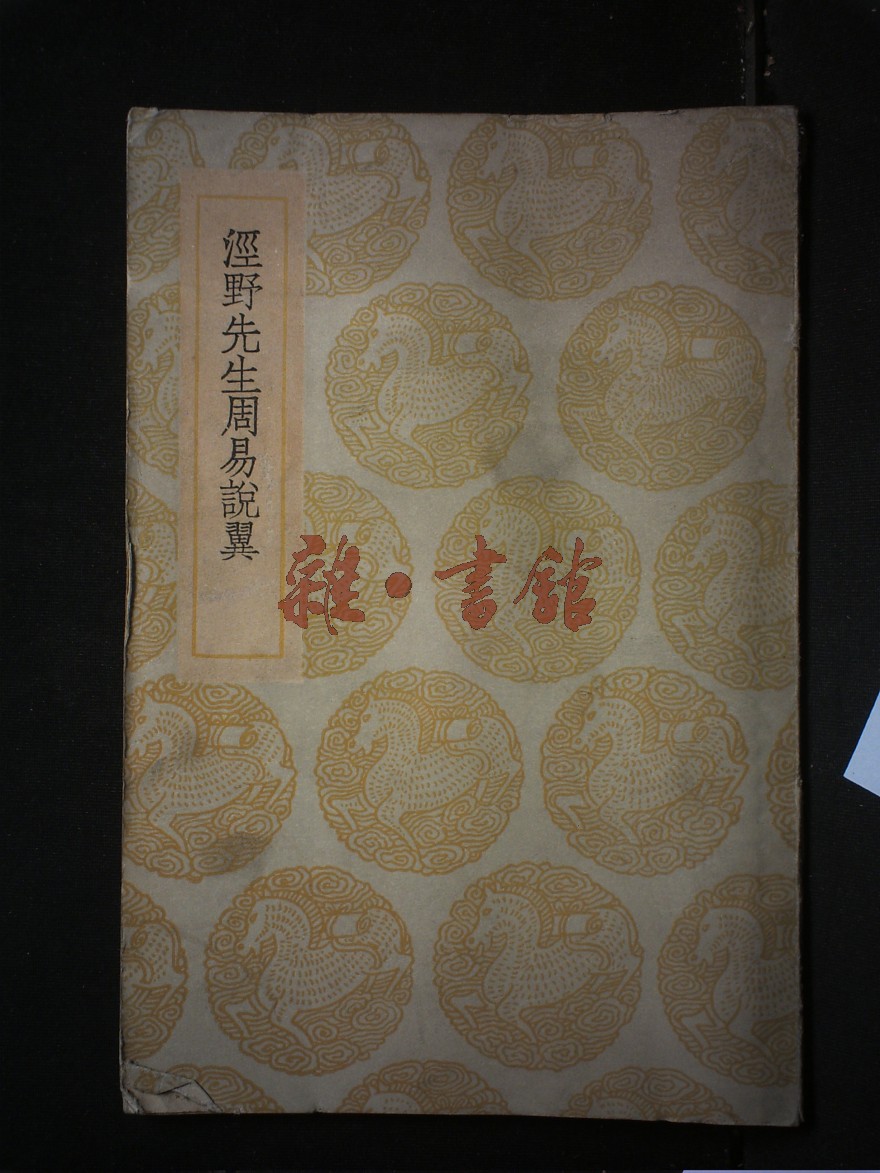 涇野先生周易說翼
雜·書館